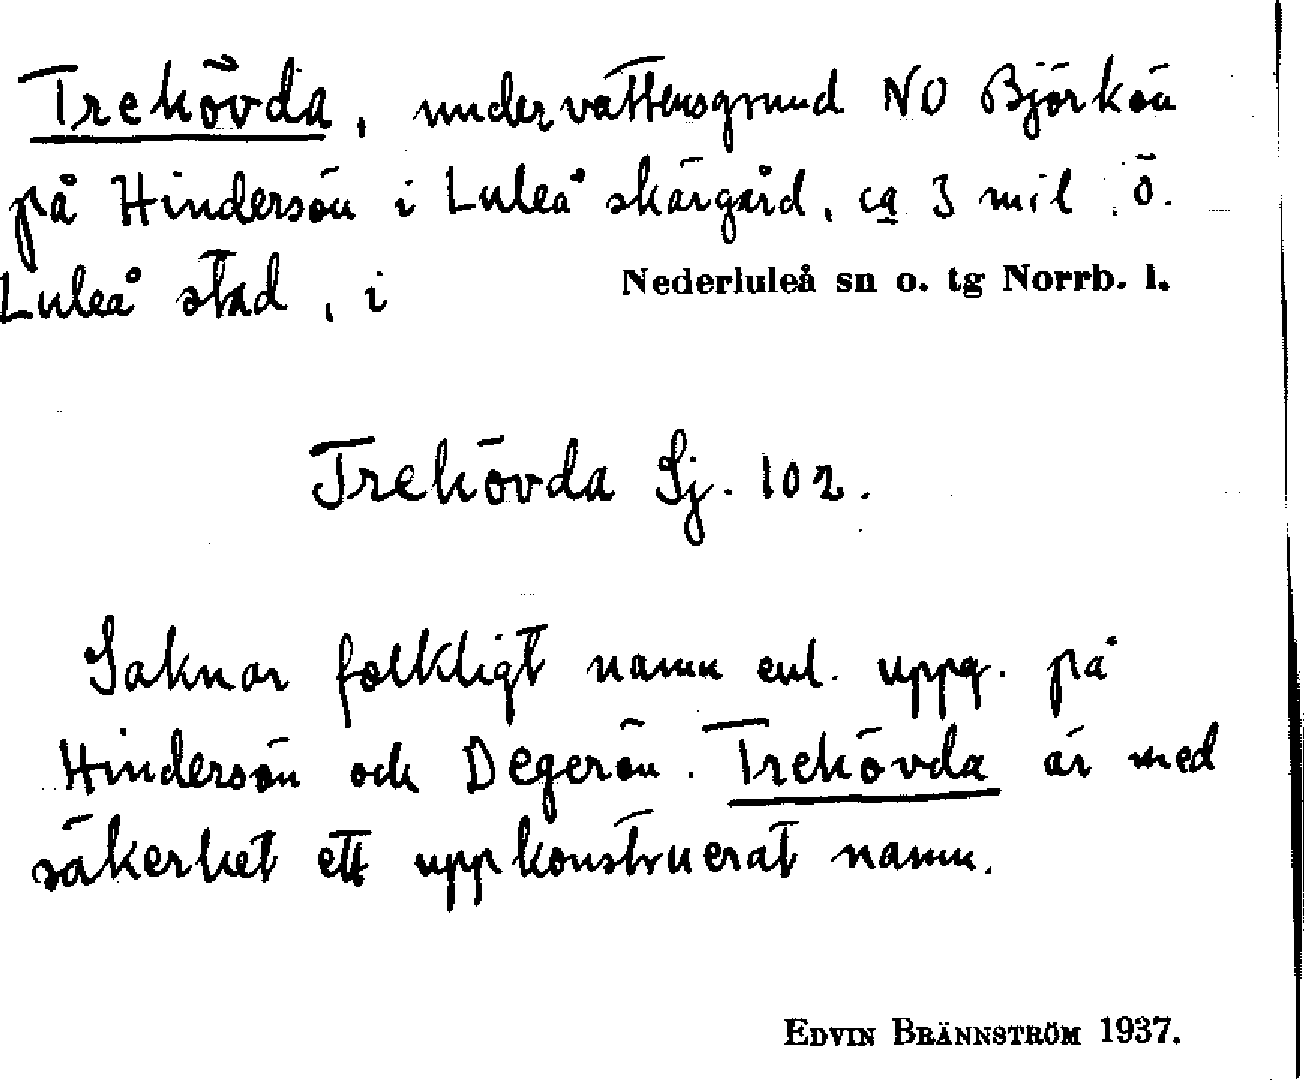 Trehövda, undervattensgrund NO Björkön
på Hindersön i Luleå skärgård, ca 3 mil Ö.
Luleå stad, i Nederluleå sn o. tg Norrb. l.
Trehövda Sj. 102.
Saknar folkligt namn enl. uppg. på
Hindersön och Degerön. Trehövda är med
säkerhet ett uppkonstruerat namn.
EDVIN BRÄNNSTRÖM 1937.